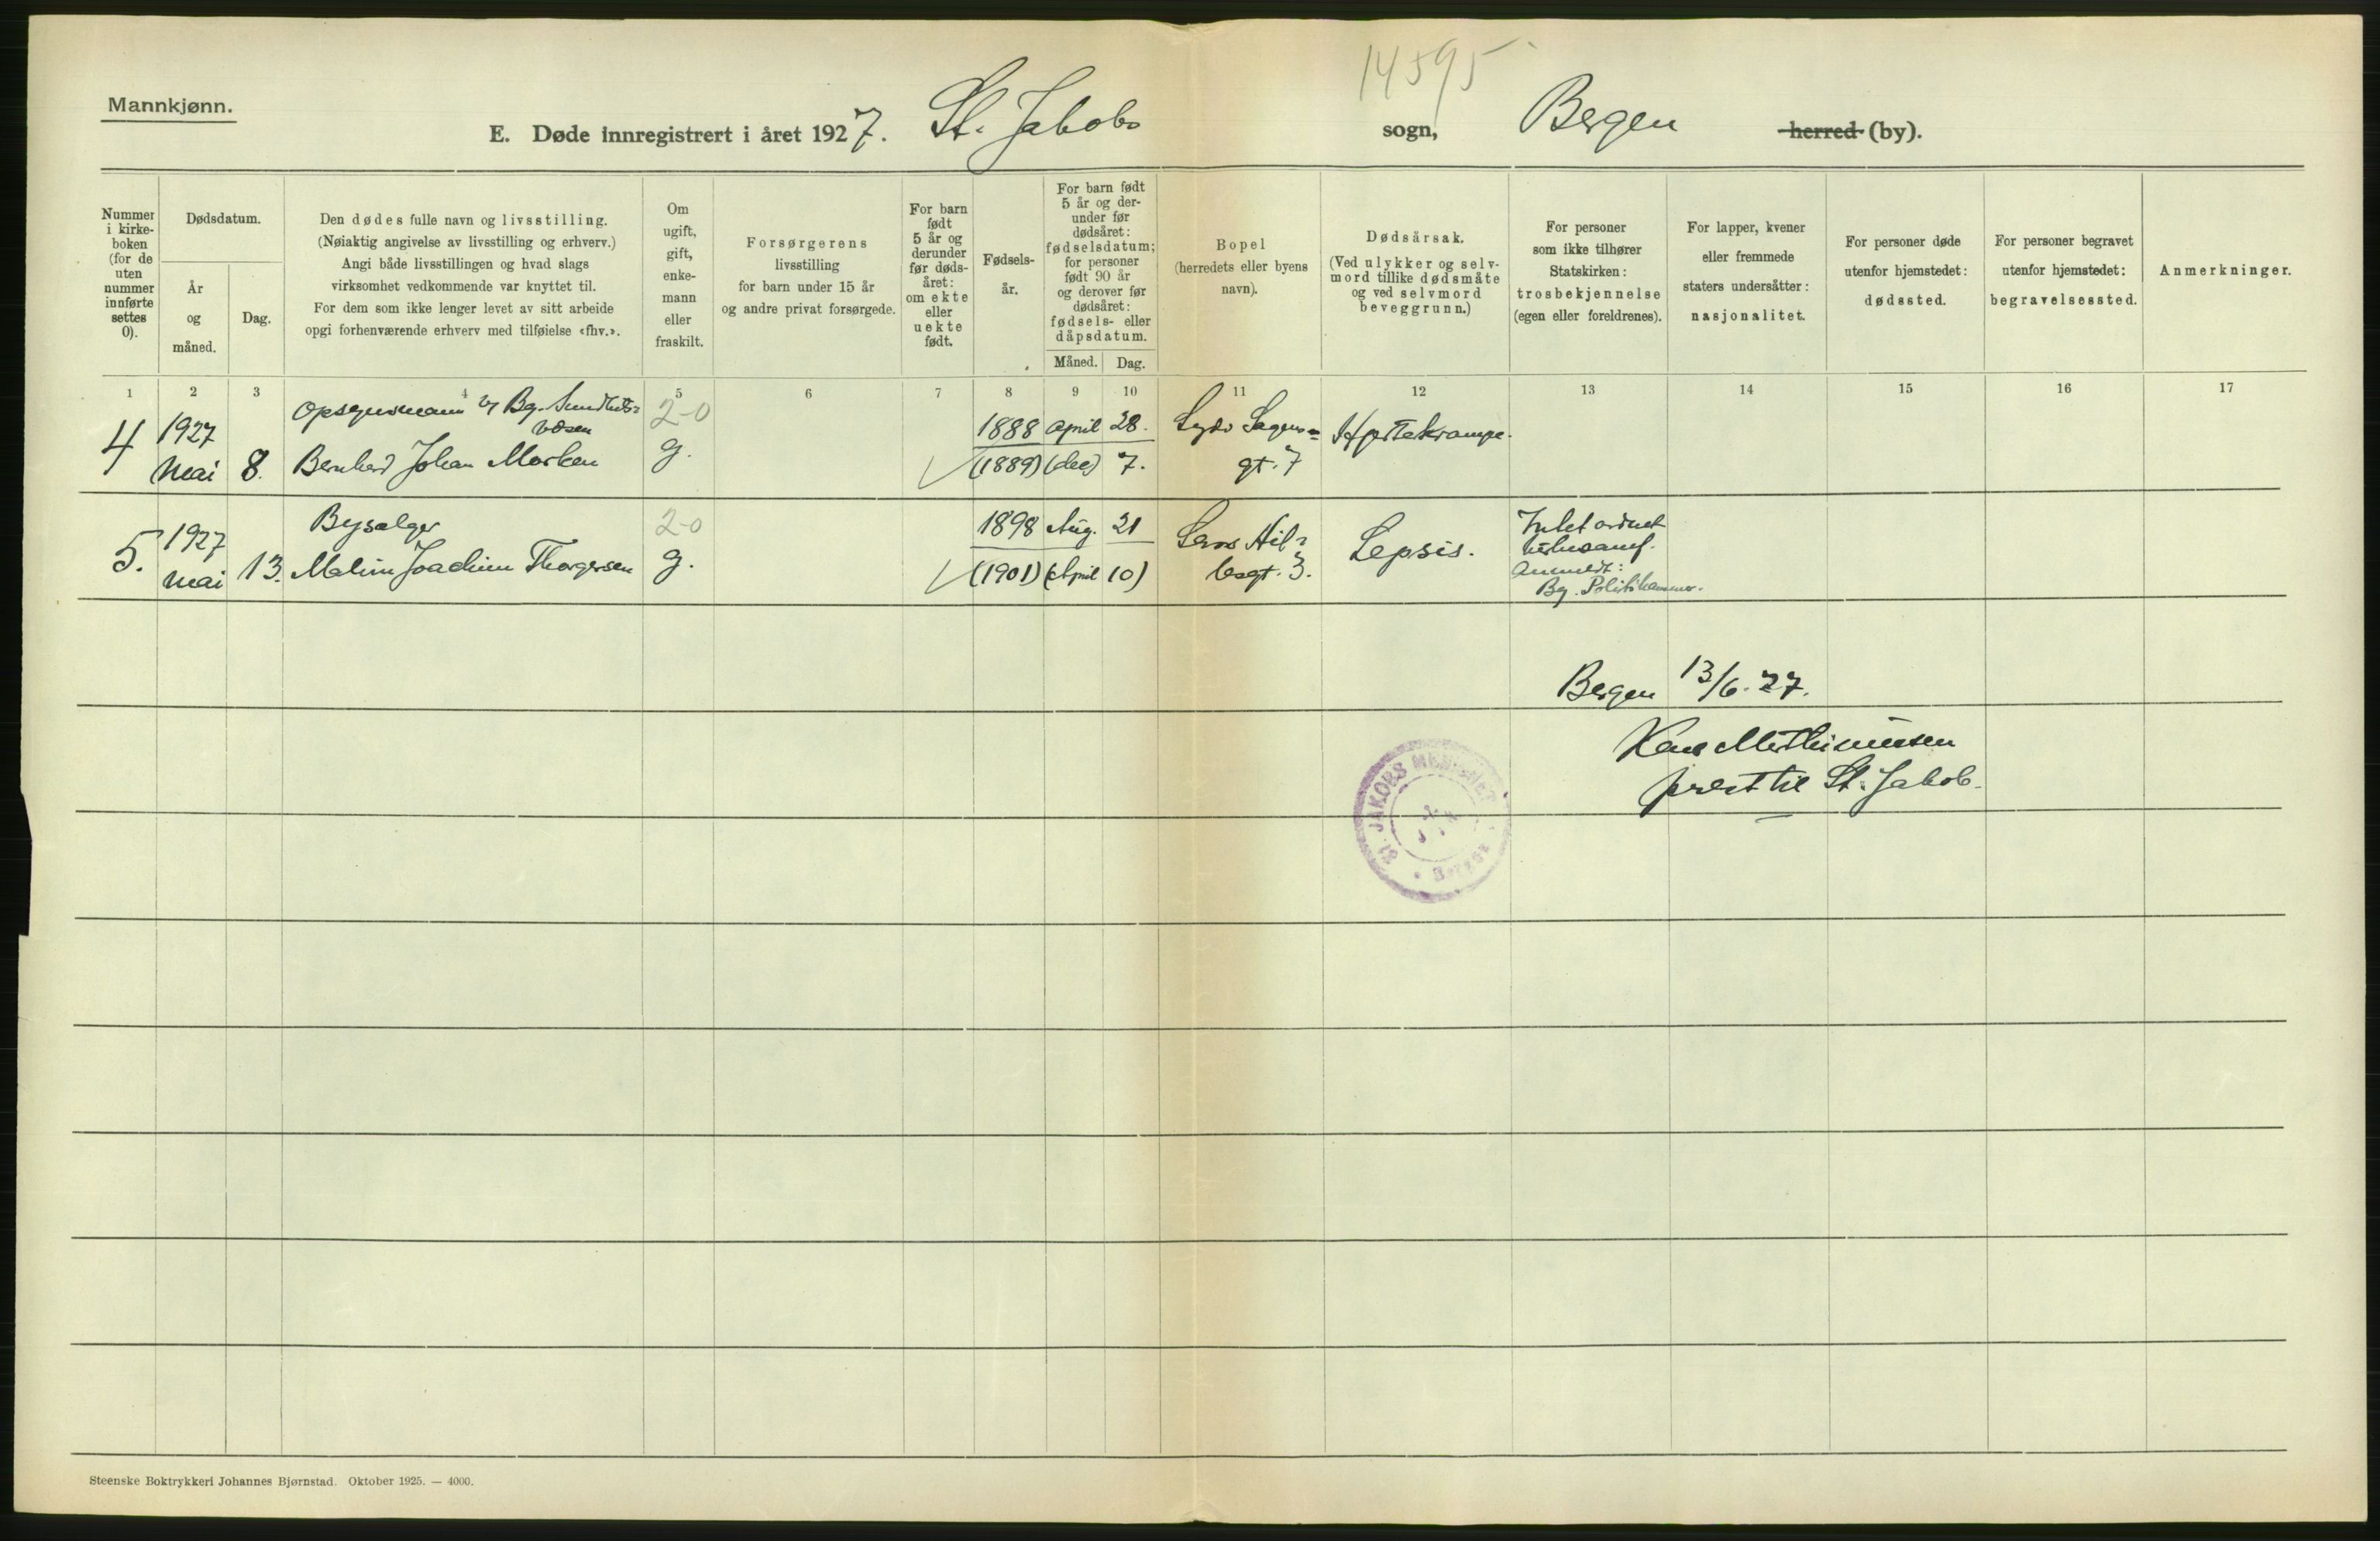 14595
Mannkjønn.
E. Døde innregistrert i året 1927. St. Jakobs sogn, Bergen herred (by).
Nummer i kirke-boken (for de uten nummer innførte settes 0).
Dødsdatum.
År og måned.
Dag.
Den dødes fulle navn og livsstilling.
(Nøiaktig angivelse av livsstilling og erhverv.)
Angi både livsstillingen og hvad slags
virksomhet vedkommende var knyttet til.
For dem som ikke lenger levet av sitt arbeide
opgi forhenværende erhverv med tilføielse «fhv.».
Om
ugift,
gift,
enke-
mann
eller
fraskilt.
Forsørgerens
livsstilling
for barn under 15 år
og andre privat forsørgede.
For barn
født
5 år og
derunder
før døds-
året:
om ekte
eller
uekte
født.
Fødsels-
år.
For barn født
5 år og der-
under før
dødsåret:
fødselsdatum;
for personer
født 90 år
og derover før
dødsåret:
fødsels- eller
dåpsdatum.
Måned. Dag.
Bopel
(herredets eller byens
navn).
Dødsårsak.
(Ved ulykker og selv-
mord tillike dødsmåte
og ved selvmord
beveggrunn.)
For personer
som ikke tilhører
Statskirken:
trosbekjennelse
(egen eller foreldrenes).
For lapper, kvener
eller fremmede
staters undersåtter:
nasjonalitet.
For personer døde
utenfor hjemstedet:
dødssted.
For personer begravet
utenfor hjemstedet:
begravelsessted.
Anmerkninger.
1 2 3 4 5 6 7 8 9 10 11 12 13 14 15 16 17
4 1927 Mai 8.
Opsynsmann v/ Bg. Sundhets-
væsen
Bernhard Johan Morken
2-0
g.
1888 April 28.
(1889) (dec) 7.
Lyder Sagens-
gt. 7
Hjertekrampe.
5. 1927 Mai 13.
Bysælger
Malim Joachim Thorgersen
2-0
g.
1898 Aug. 21
(1901) (April 10)
Lars Hil-
lesgt. 3.
Sepsis.
Intet ordnet
kirkesamf.
Anmeldt:
Bg. Politikammer.
Bergen 13/6. 27.
prest til St. Jakob.
ST. JAKOBS MENIGHET
Bergen
Steenske Boktrykkeri Johannes Bjørnstad. Oktober 1925. — 4000.